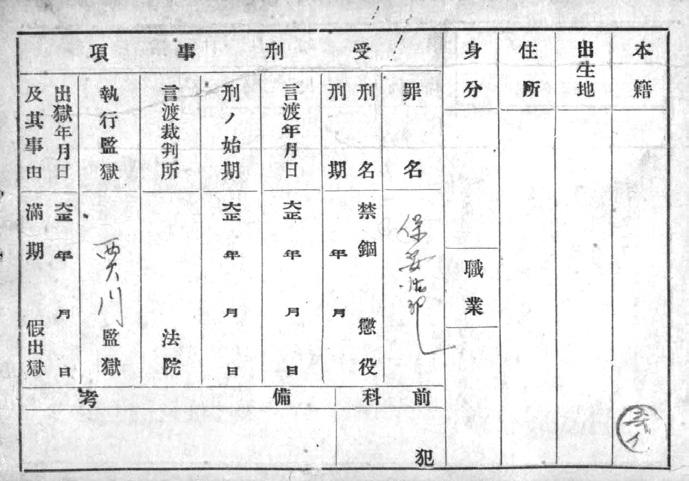 本籍
出生地
住所
身分
職業
受刑事項
罪名
保安法
刑名
禁錮 懲役
刑期
年 月
言渡年月日
大正 年 月 日
刑ノ始期
大正 年 月 日
言渡裁判所
法院
執行監獄
監獄
出獄年月日
及其事由
大正 年 月 日
滿期 假出獄
前科
犯
備考